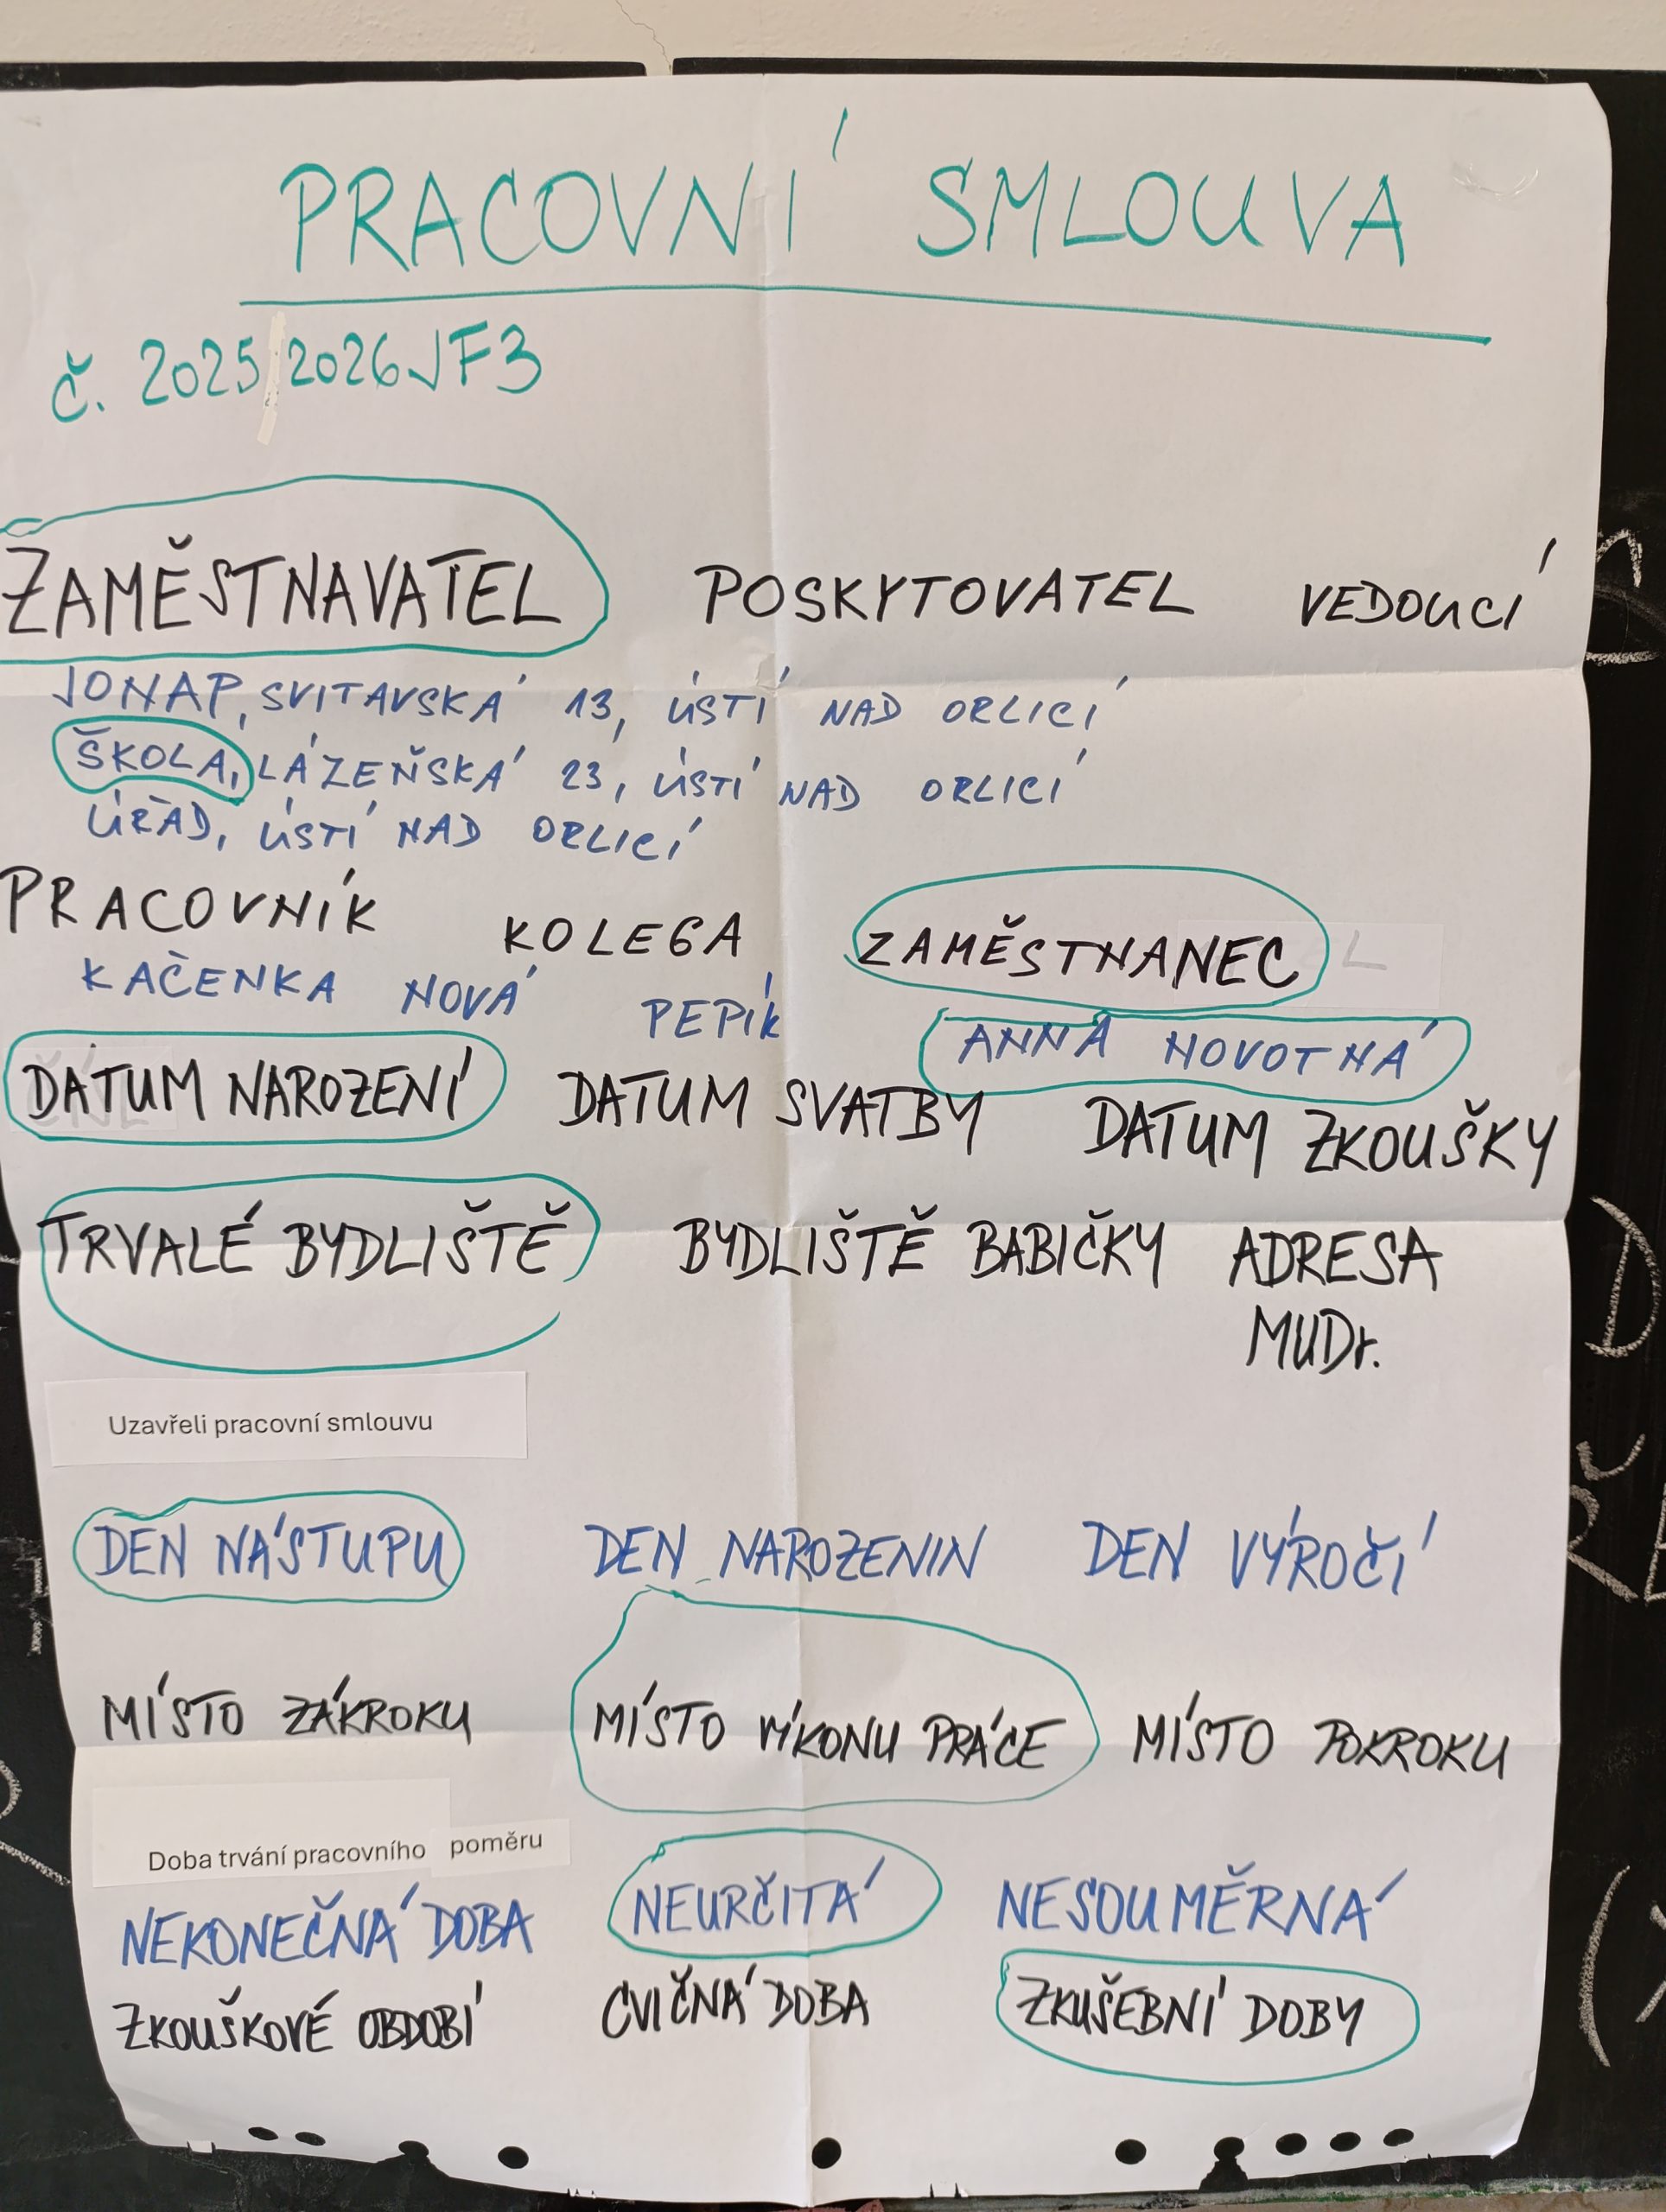 PRACOVNÍ SMLOUVA
č. 2025/2026JF3
ZAMĚSTNAVATEL POSKYTOVATEL VEDOUCÍ
JONAP, SVITAVSKÁ 13, ÚSTÍ NAD ORLICÍ
ŠKOLA, LÁZEŇSKÁ 23, ÚSTÍ NAD ORLICÍ
ÚŘAD, ÚSTÍ NAD ORLICÍ
PRACOVNÍK KOLEGA ZAMĚSTNANEC
KAČENKA NOVÁ PEPÍK ANNA NOVOTNÁ
DATUM NAROZENÍ DATUM SVATBY DATUM ZKOUŠKY
TRVALÉ BYDLIŠTĚ BYDLIŠTĚ BABIČKY ADRESA
MUDr.
Uzavřeli pracovní smlouvu
DEN NÁSTUPU DEN NAROZENIN DEN VÝROČÍ
MÍSTO ZÁKROKU MÍSTO VÝKONU PRÁCE MÍSTO POKROKU
Doba trvání pracovního poměru
NEKONEČNÁ DOBA NEURČITÁ NESOUMĚRNÁ
ZKOUŠKOVÉ OBDOBÍ CVIČNÁ DOBA ZKUŠEBNÍ DOBY